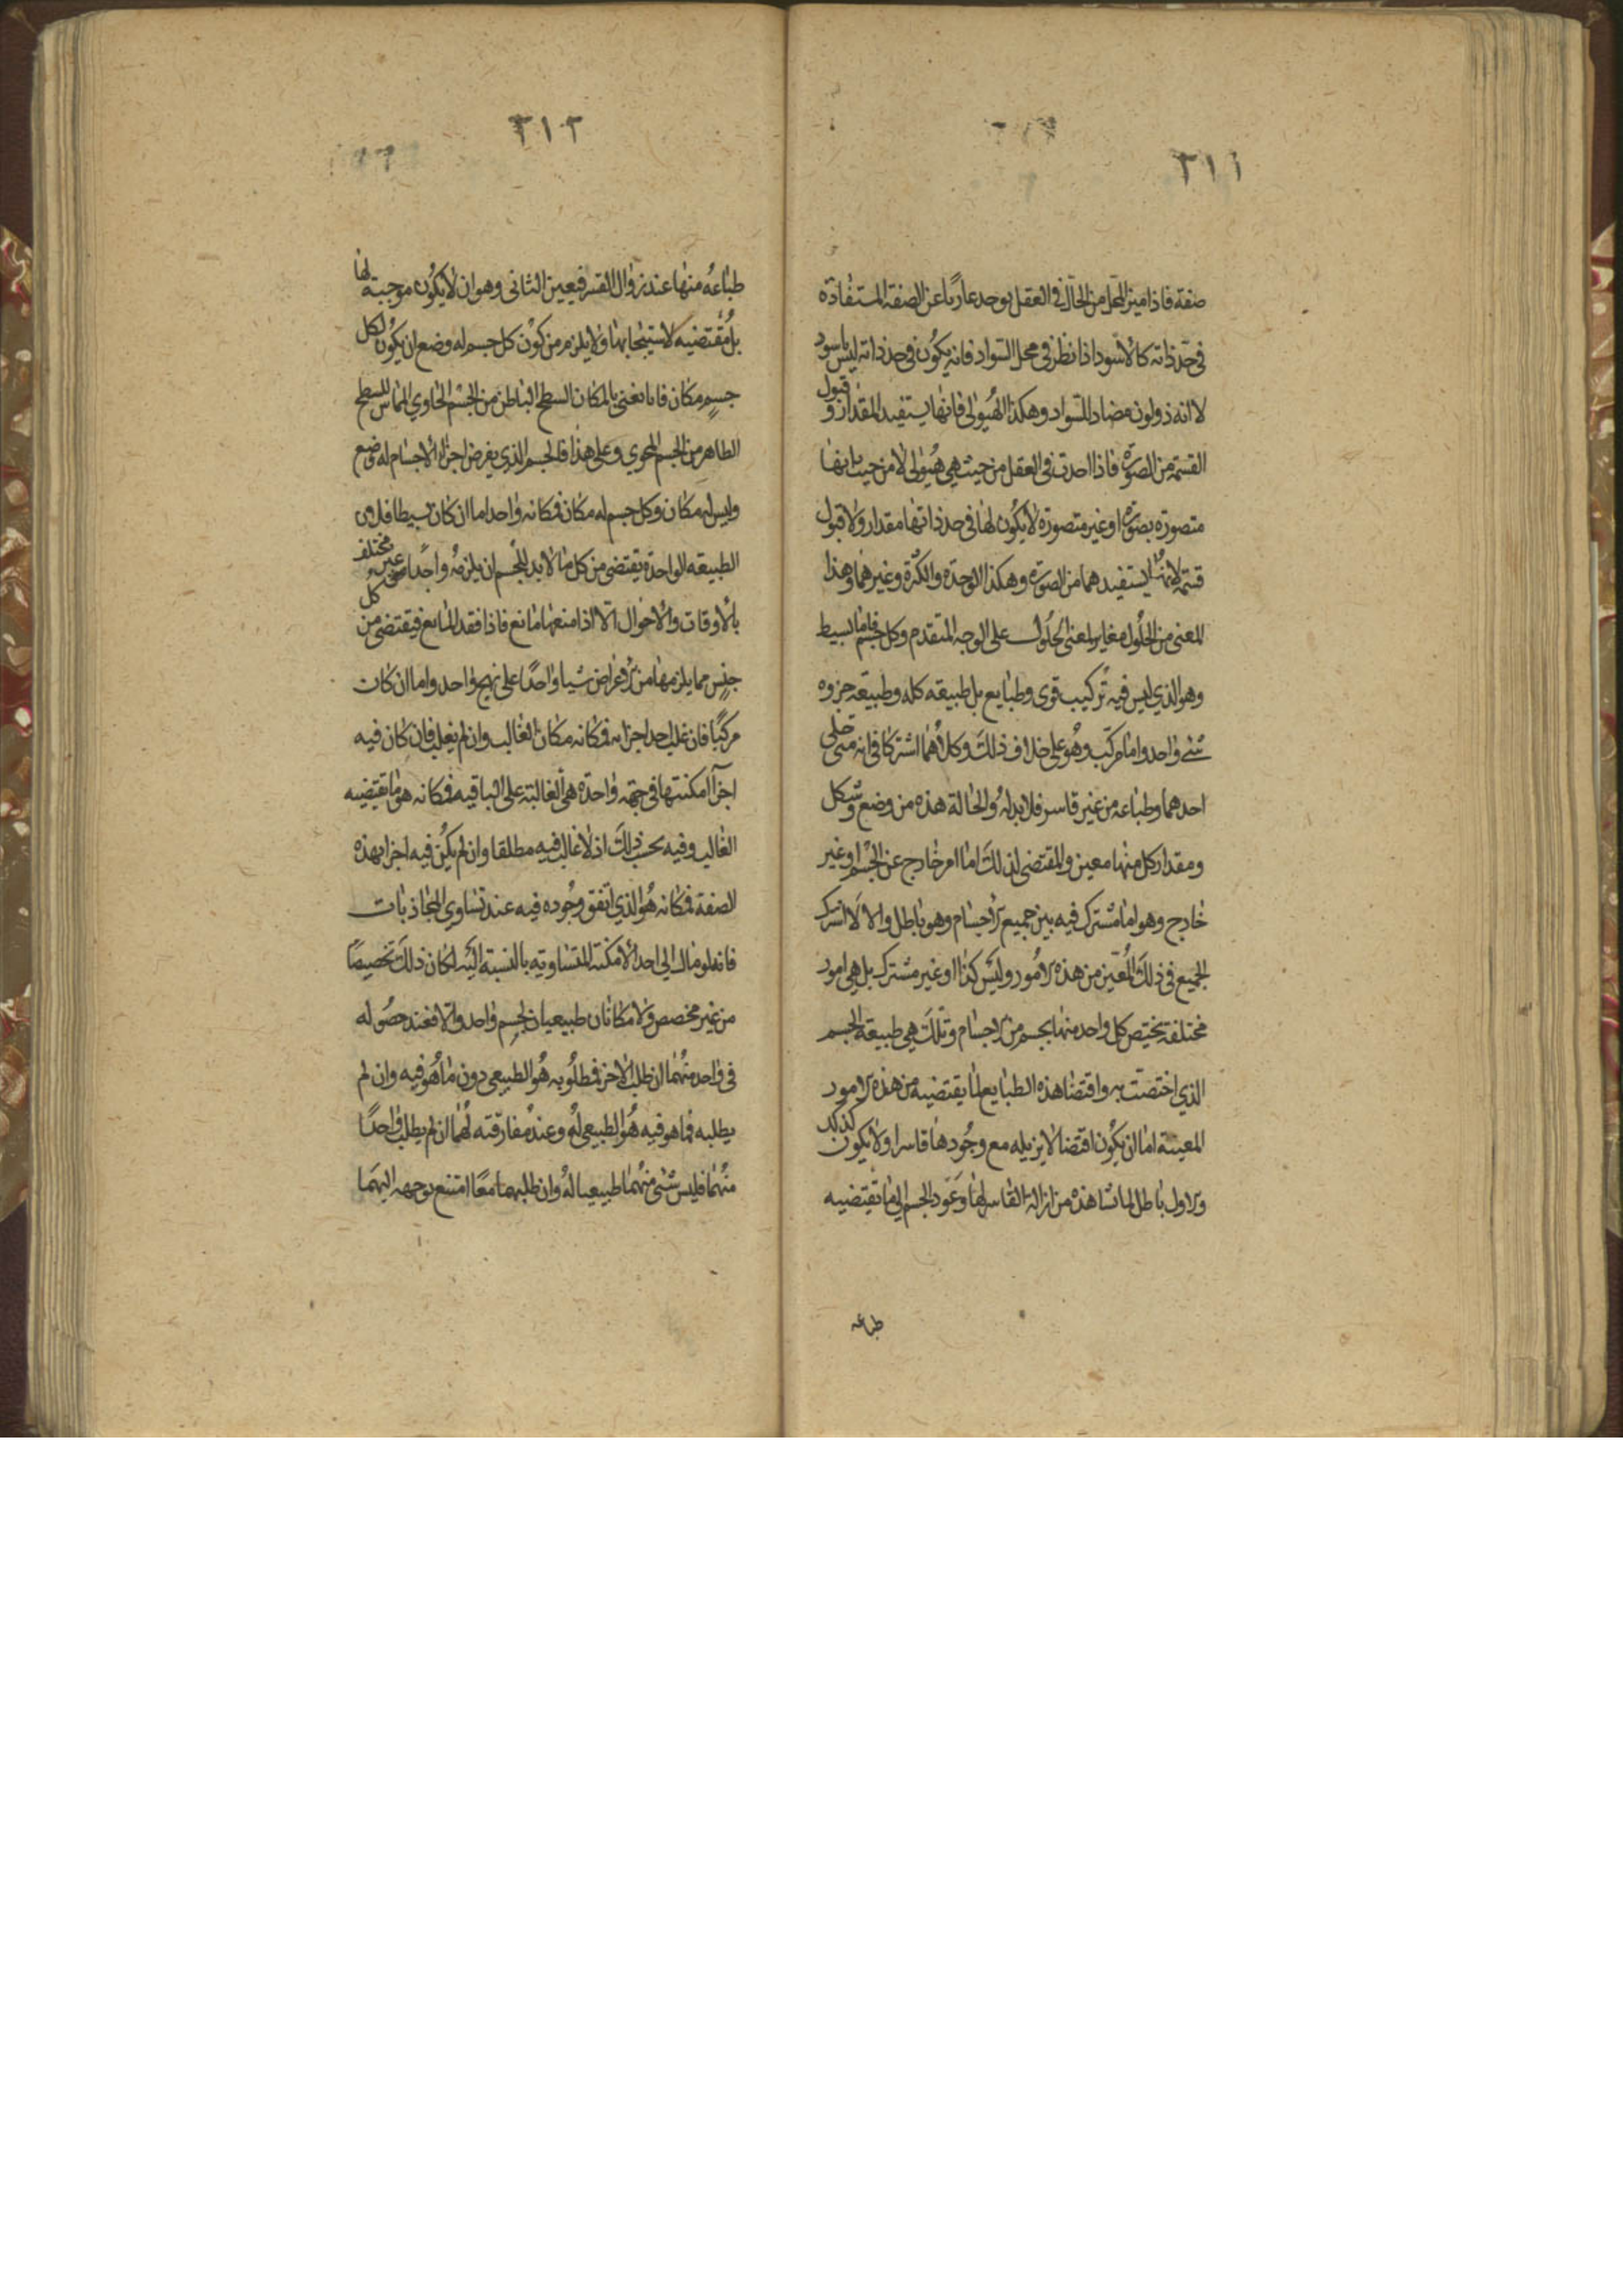 ٣١١
صفة فاذا ميز المحل من الحال في العقل يوجد عاريا عن الصفة المستفادة
في حد ذاته كالاسود اذا نظر في محل السواد فانه يكون في حد ذاته ليس باسود
لا انه ذو لون مضاد للسواد وهكذا الهيولى فانها يستفيد المقدار وقبول
القسمة من الصورة فاذا احدت في العقل من حيث هي هيولى لا من حيث انها
متصورة بصورة او غير متصورة لا يكون لها في حد ذاتها مقدار ولا قبول
قسمة لانها يستفيدهما من الصورة وهكذا الوحدة والكثرة وغيرهما وهذا
المعنى من الحلول مغاير لمعنى الحلول على الوجه المتقدم وكل جسم فاما بسيط
وهو الذي ليس فيه تركيب قوى وطبايع بل طبيعة كله وطبيعة جزوه
شئ واحد واما مركب وهو على خلاف ذلك وكلاهما اشتركا في انه متى خلى
احدهما وطباعه من غير قاسر فلا بد له والحالة هذه من وضع وشكل
ومقدار كل منها معين والمقتضى لذلك اما امر خارج عن الجسم او غير
خارج وهو اما مشترك فيه بين جميع الاجسام وهو باطل والا لاشترك
الجميع في ذلك المعين من هذه الامور وليس كذا او غير مشترك بل هي امور
مختلفة يختص كل واحد منها بجسم من الاجسام وتلك هي طبيعة الجسم
الذي اختصت به واقتضا هذه الطبايع لما يقتضيه من هذه الامور
المعينة اما ان يكون اقتضا لا يزيله مع وجودها قاسر او لا يكون كذلك
والاول باطل لما نشاهده من ازالة القاسر لها وعود الجسم الى ما تقتضيه
طباعه
٣١٢
طباعه منها عند زوال القسر فيعين الثاني وهو ان لا يكون موجبة لها
بل مقتضيه لاستيجابها ولا يلزم من كون كل جسم له وضع ان يكون لكل
جسم مكان فانا نعنى بالمكان السطح الباطن من الجسم الحاوي المماس للسطح
الظاهر من الجسم المحوي وعلى هذا فالجسم الذي يفرض اجزاء الاجسام له وضع
وليس له مكان وكل جسم له مكان فمكانه واحد اما ان كان بسيطا فلان
الطبيعة الواحدة يقتضى من كل ما لا بد للجسم ان يلزمه واحدا غير مختلف
بالاوقات والاحوال الا اذا منعها مانع فاذا فقد المانع فيقتضى من كل
جنس مما يلزمها من الاعراض شيا واحدا على نهج واحد واما ان كان
مركبا فان غلب احد اجزائه فمكانه مكان الغالب وان لم يغلب فان كان فيه
اجزا امكنتها في جهة واحدة هي الغالبة على الباقيه فمكانه هو ما تقتضيه
الغالب وفيه بحسب ذلك اذ لا غالب فيه مطلقا وان لم يكن فيه اجزا بهذه
الصفة فمكانه هو الذي اتفق وجوده فيه عند تساوي المجاذبات
فانه لو مال الى احد الامكنة المتساوية بالنسبة اليه لكان ذلك تخصيصا
من غير مخصص ولا مكانان طبيعيان لجسم واحد والا فعند حصوله
في واحد منهما ان طلب الاخر فمطلوبه هو الطبيعي دون ما هو فيه وان لم
يطلبه فما هو فيه هو الطبيعي له وعند مفارقته لهما ان لم يطلب واحدا
منهما فليس شئ منهما طبيعيا له وان طلبهما معا امتنع توجهه اليهما